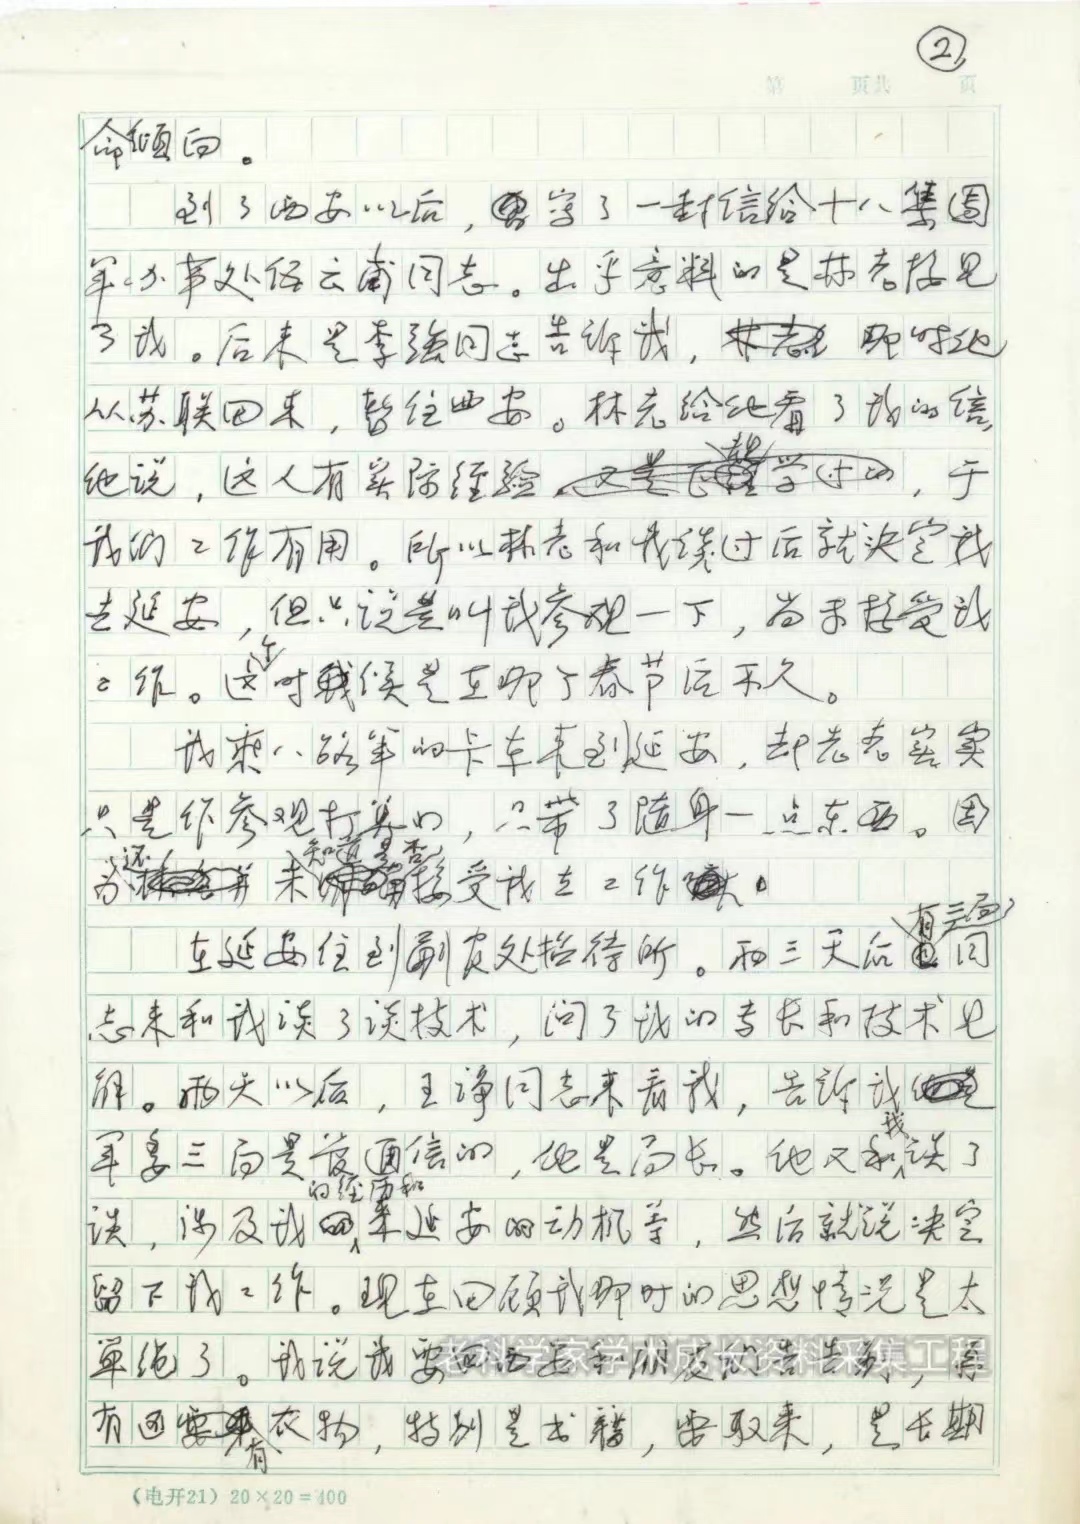 ②
第 页共 页
命倾向。
到了西安以后，写了一封信给十八集团
军办事处伍云甫同志。出乎意料的是林老接见
了我。后来是李强同志告诉我，那时他
从苏联回来，暂住西安。林老给他看了我的信，
他说，这人有实际经验，于
我的工作有用。所以林老和我谈过后就决定我
去延安，但只说是叫我参观一下，尚未接受我
工作。这个时候是在那了春节后不久。
我乘八路军的卡车来到延安，却老老实实
只是作参观打算的，只带了随身一点东西。因
为还未知道是否接受我去工作。
在延安住到副官处招待所。两三天后有三局同
志来和我谈了谈技术，问了我的专长和技术见
解。两天以后，王诤同志来看我，告诉我
军委三局是管通信的，他是局长。他又和我谈了
谈，涉及我的经历和来延安的动机等，然后就说决定
留下我工作。现在回顾我那时的思想情况是太
单纯了。我说我要回西安和朋友们告告别，
有还有衣物，特别是书籍，要取来，是长期
老科学家学术成长资料采集工程
（电开21）20×20=400